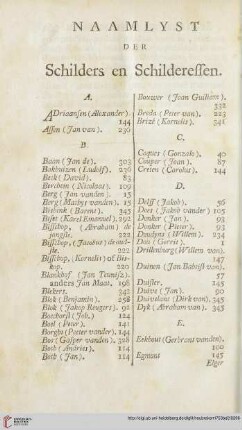 NAAMLYST
DER
Schilders en Schilderessen.
A.
Adriaansen (Alexander).
144
Assen (Jan van). 236
B.
Baan (Jan de). 303
Bakhuizen (Ludolf). 236
Beek (David). 83
Berchem (Nicolaas). 109
Berg (Jan vanden). 15
Berg (Mathys vanden). 15
Bisbink (Barent). 345
Biset (Karel Emanuel). 292
Bisschop, (Abraham) de
jongste. 222
Bisschop, (Jacobus) de oud-
ste. 222
Bisschop, (Kornelis) of Bis-
kop. 220
Blankhof (Jan Teunisz)
anders Jan Maat. 198
Blekers. 342
Blok (Benjamin). 258
Blok (Jakob Reugers). 92
Bockhorst (Joh.) 124
Boel (Peter). 141
Borght (Peeter vander). 144
Bot (Gasper vanden). 306
Both (Andries). 114
Both (Jan). 114
Bouwer (Jean Guilham).
332
Breda (Peter van). 223
Brizé (Kornelis). 341
C.
Coques (Gonzalo). 40
Cosper (Jean). 87
Creten (Carolus). 144
D.
Delff (Jakob). 56
Does (Jakob vander) 105
Donker (Jan). 93
Donker (Pieter). 93
Doudyns (Willem). 234
Dou (Gerrit). 1
Drillenburg (Willem van).
147
Duinen (Jan Babtist van).
57
Dutsler. 245
Duive (Jan). 90
Duivelant (Dirk van). 345
Dyk (Abraham van). 345
E.
Eekhout (Gerbrant vanden).
100
Egmont 145
Elger
http://digi.ub.uni-heidelberg.de/diglit/houbraken1753bd2/0009